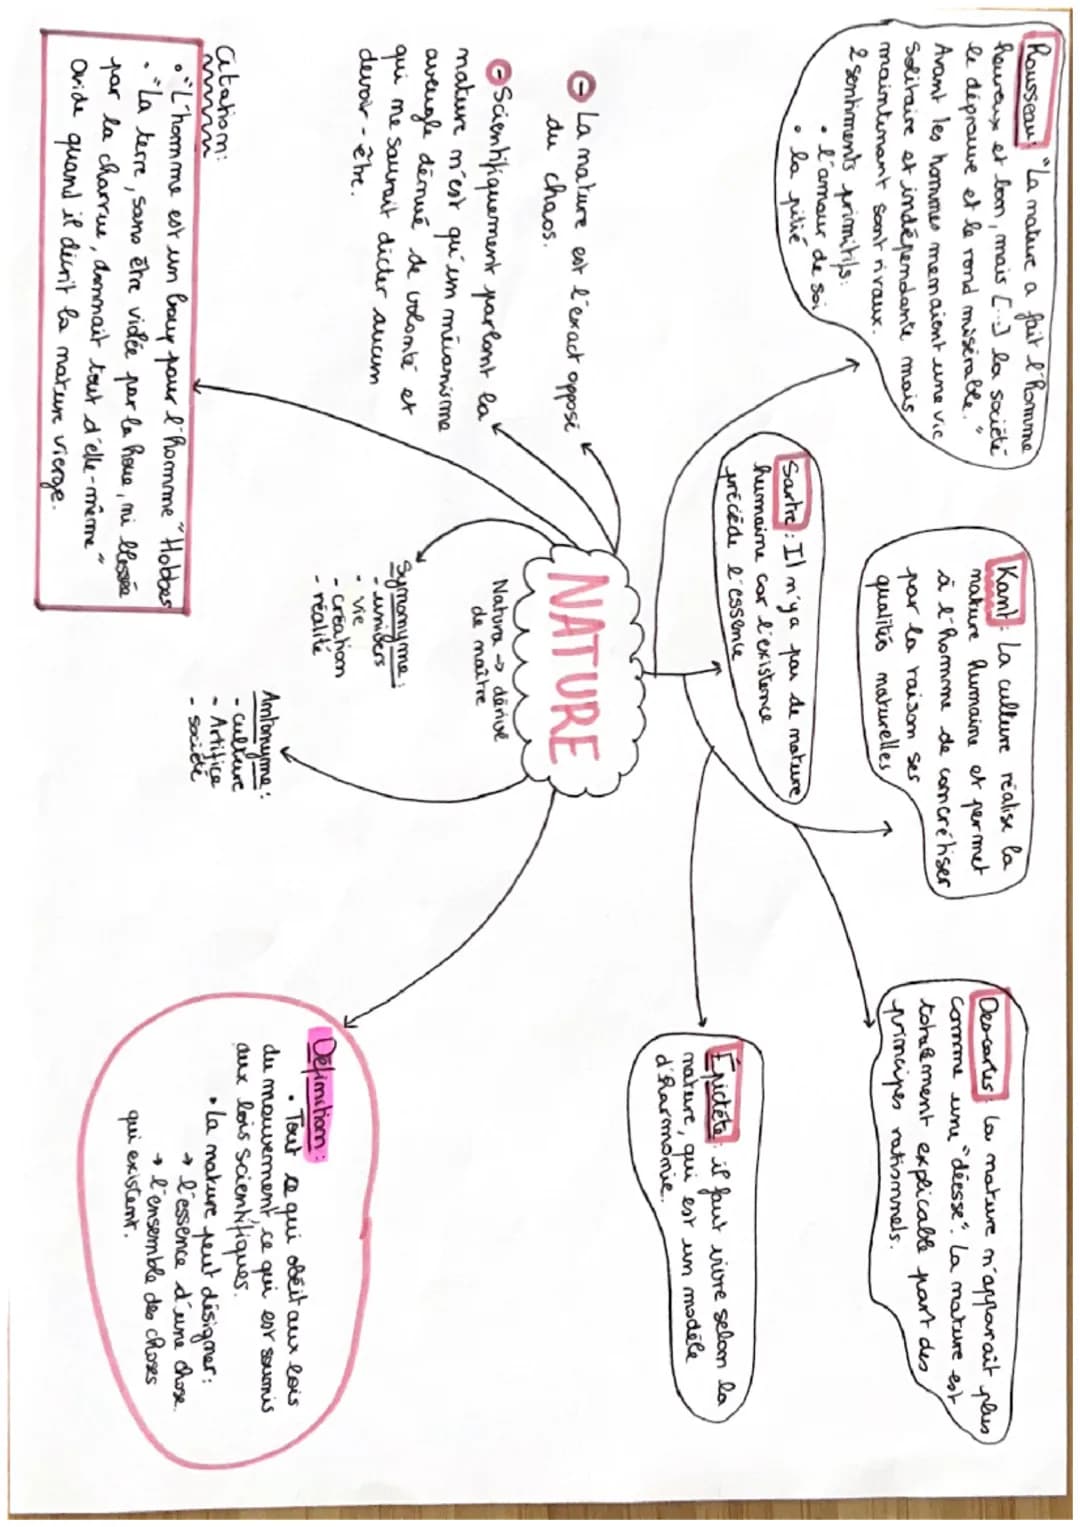 Rousseau: "La nature a fait l'homme
heureux et bon, mais [...] la société
le déprave et le rend misérable."
Avant les hommes menaient une vie
solitaire et indépendante mais
maintenant sont rivaux.
2 sentiments primitifs:
• l'amour de soi
• la pitié
Kant: La culture réalise la
nature humaine et permet
à l'homme de concrétiser
par la raison ses
qualités naturelles
Descartes: la nature n'apparaît plus
comme une "déesse". La nature est
totalement explicable part des
principes rationnels.
Sartre: Il n'y a pas de nature
humaine car l'existence
précède l'essence
Épictète: il faut vivre selon la
nature, qui est un modèle
d'harmonie.
- La nature est l'exact opposé
du chaos.
- Scientifiquement parlant la
nature n'est qu'un mécanisme
aveugle dénué de volonté et
qui ne saurait dicter aucun
devoir-être.
NATURE
Natura → dérive
de naître
Synonyme:
- univers
- vie
- création
- réalité
Antonyme:
- culture
- Artifice
- société
Définition:
• Tout ce qui obéit aux lois
du mouvement ce qui est soumis
aux lois scientifiques.
• la nature peut désigner:
→ l'essence d'une chose
→ l'ensemble des choses
qui existent.
Citation:
• "L'homme est un loup pour l'homme" Hobbes
• "La terre, sans être violée par la houe, ni blessée
par la charrue, donnait tout d'elle-même"
Ovide quand il décrit la nature vierge.